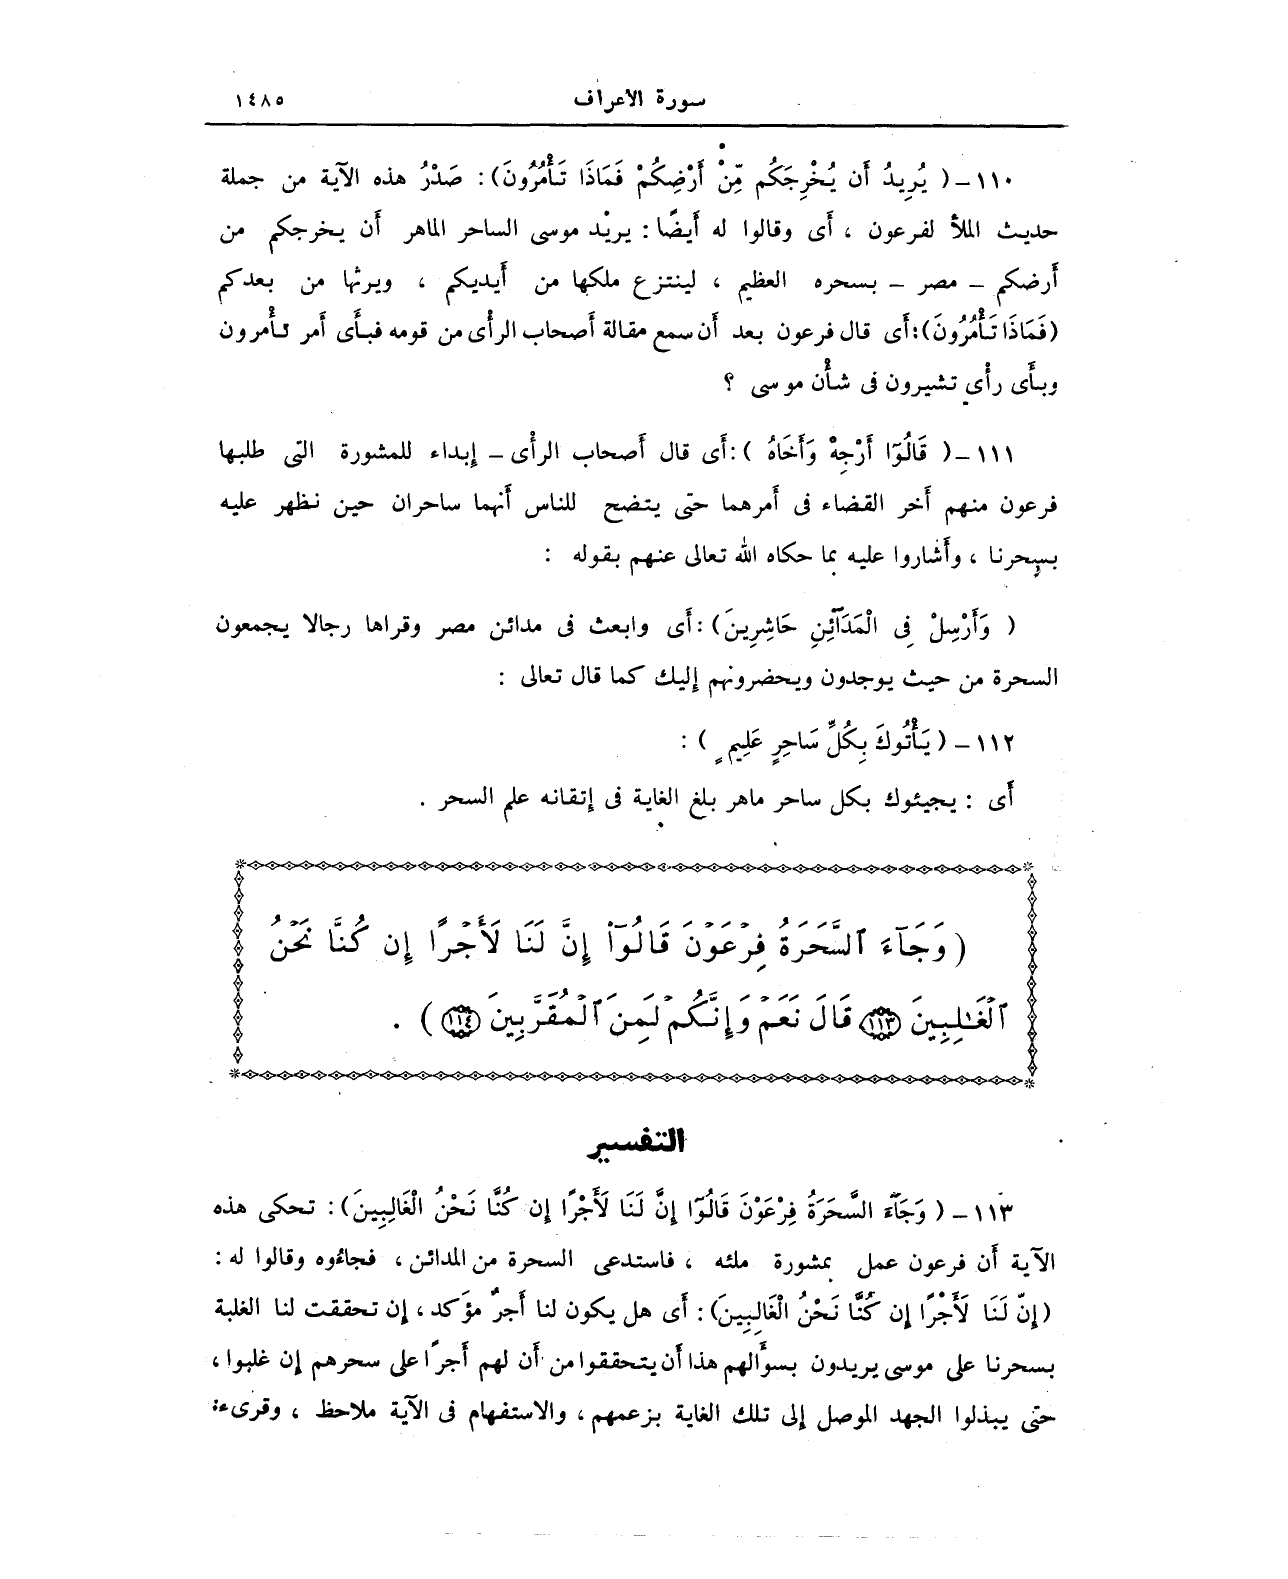 سورة الأعراف ١٤٨٥
١١٠ – ( يُرِيدُ أَن يُخْرِجَكُم مِّنْ أَرْضِكُمْ فَمَاذَا تَأْمُرُونَ) : صَدْرُ هذه الآية من جملة
حديث الملأ لفرعون ، أى وقالوا له أيضًا : يريد موسى الساحر الماهر أن يخرجكم من
أرضكم – مصر – بسحره العظيم ، لينتزع ملكها من أيديكم ، ويرثها من بعدكم
(فَمَاذَا تَأْمُرُونَ): أى قال فرعون بعد أن سمع مقالة أصحاب الرأى من قومه فبأى أمر تأمرون
وبأى رأى تشيرون فى شأن موسى ؟
١١١ – ( قَالُوٓا أَرْجِهْ وَأَخَاهُ ) : أى قال أصحاب الرأى – إبداء للمشورة التى طلبها
فرعون منهم أخر القضاء فى أمرهما حتى يتضح للناس أنهما ساحران حين نظهر عليه
بسحرنا ، وأشاروا عليه بما حكاه الله تعالى عنهم بقوله :
( وَأَرْسِلْ فِى الْمَدَآئِنِ حَاشِرِينَ) : أى وابعث فى مدائن مصر وقراها رجالا يجمعون
السحرة من حيث يوجدون ويحضرونهم إليك كما قال تعالى :
١١٢ – ( يَأْتُوكَ بِكُلِّ سَاحِرٍ عَلِيمٍ ) :
أى : يجيئوك بكل ساحر ماهر بلغ الغاية فى إتقانه علم السحر .
( وَجَآءَ ٱلسَّحَرَةُ فِرْعَوْنَ قَالُوٓا۟ إِنَّ لَنَا لَأَجْرًا إِن كُنَّا نَحْنُ
ٱلْغَٰلِبِينَ ١١٣ قَالَ نَعَمْ وَإِنَّكُمْ لَمِنَ ٱلْمُقَرَّبِينَ ١١٤ ) .
التفسير
١١٣ – ( وَجَآءَ السَّحَرَةُ فِرْعَوْنَ قَالُوٓا إِنَّ لَنَا لَأَجْرًا إِن كُنَّا نَحْنُ الْغَالِبِينَ) : تحكى هذه
الآية أن فرعون عمل بمشورة ملئه ، فاستدعى السحرة من المدائن ، فجاءوه وقالوا له :
(إِنَّ لَنَا لَأَجْرًا إِن كُنَّا نَحْنُ الْغَالِبِينَ) : أى هل يكون لنا أجرٌ مؤَكد ، إن تحققت لنا الغلبة
بسحرنا على موسى يريدون بسؤالهم هذا أن يتحققوا من أن لهم أجرًا على سحرهم إن غلبوا ،
حتى يبذلوا الجهد الموصل إلى تلك الغاية بزعمهم ، والاستفهام فى الآية ملاحظ ، وقرىء :